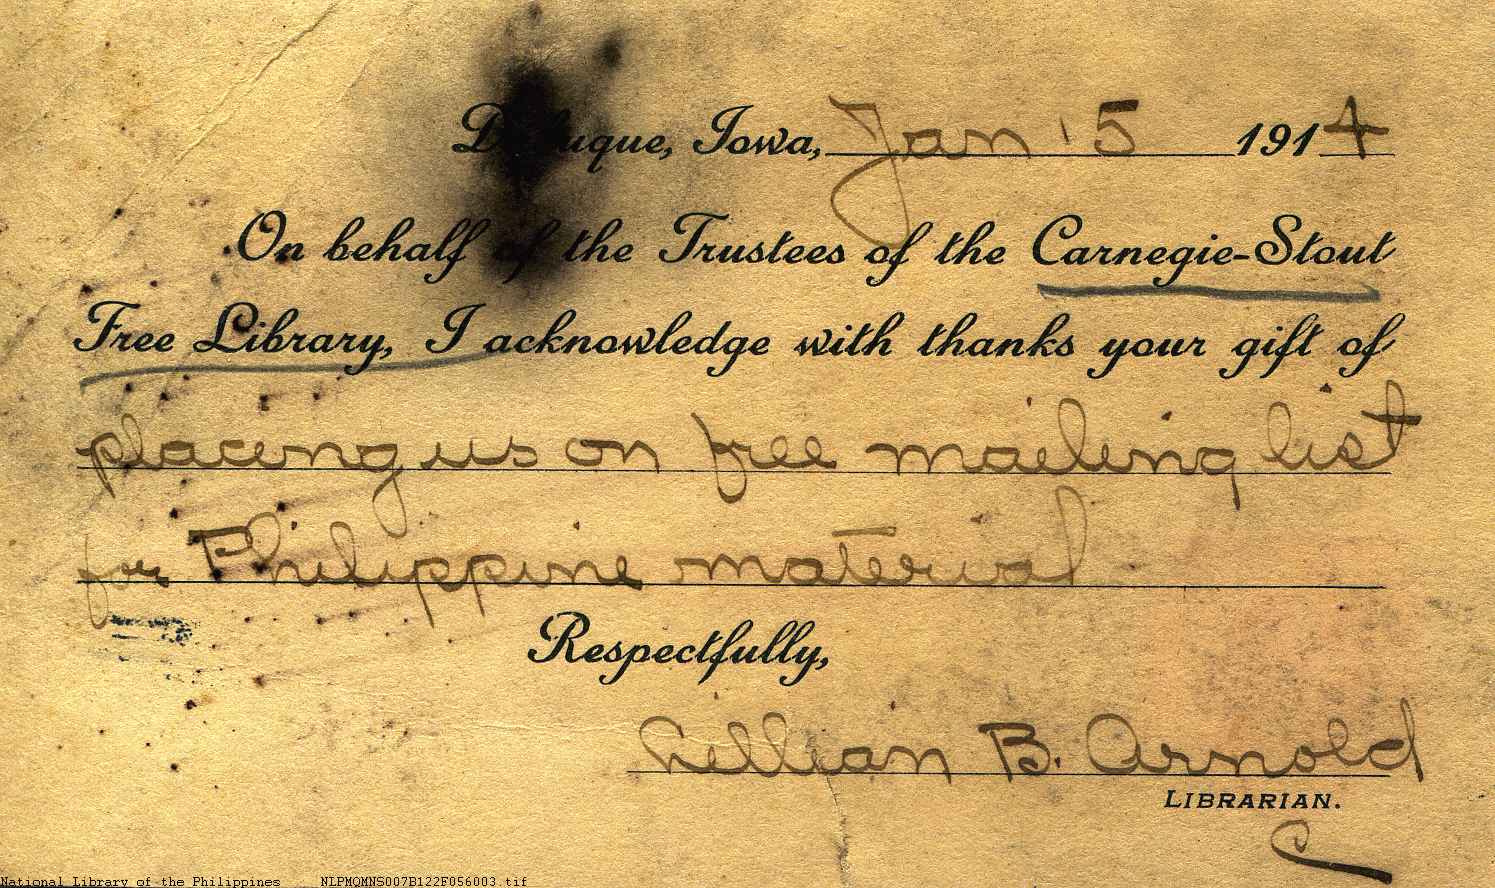 Dubuque, Iowa, Jan 15 1914
On behalf of the Trustees of the Carnegie-Stout
Free Library, I acknowledge with thanks your gift of
placing us on free mailing list
for Philippine material
Respectfully,
Lillian B. Arnold
LIBRARIAN.
National Library of the Philippines NLPMQMNS007B122F056003.tif